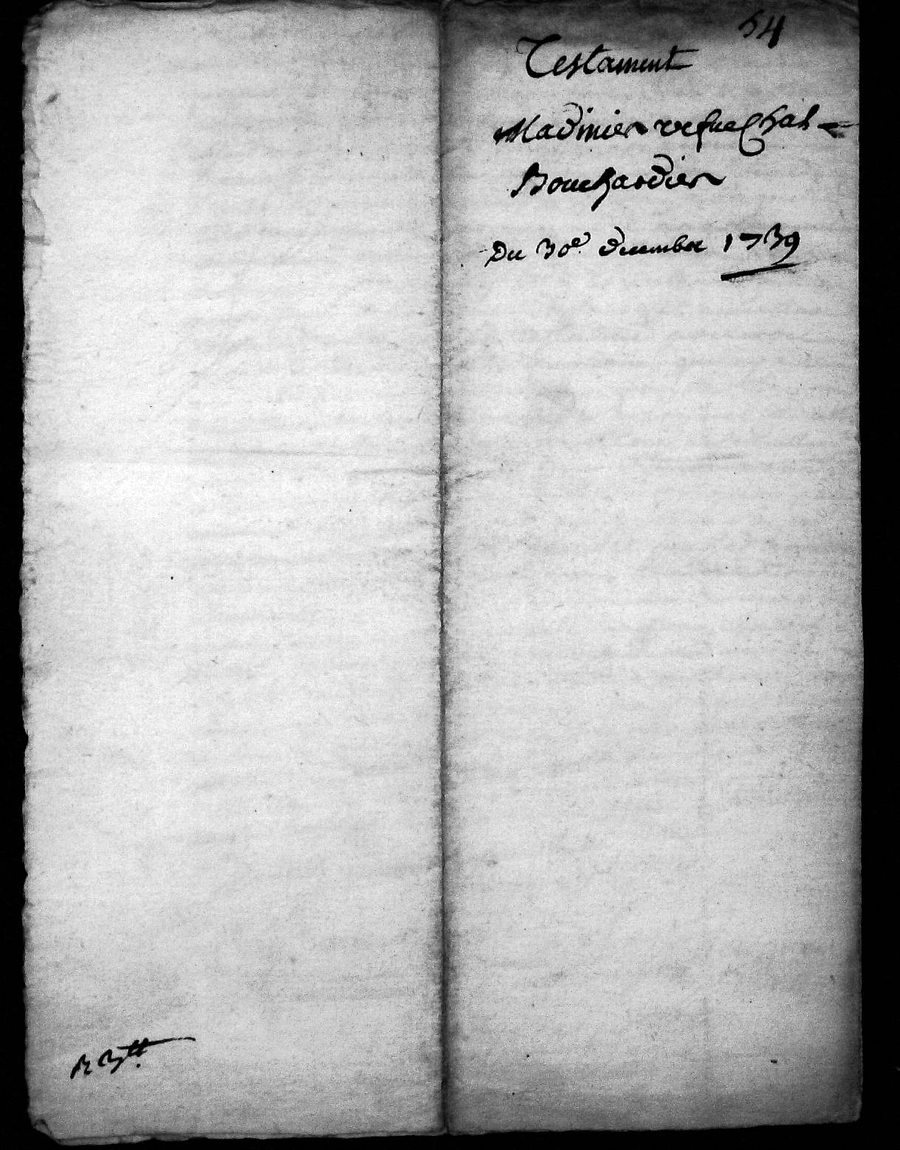 54
Testament
Madinier vefue Chal
Bouchardier
Du 30e. decembre 1739
R 3tt.